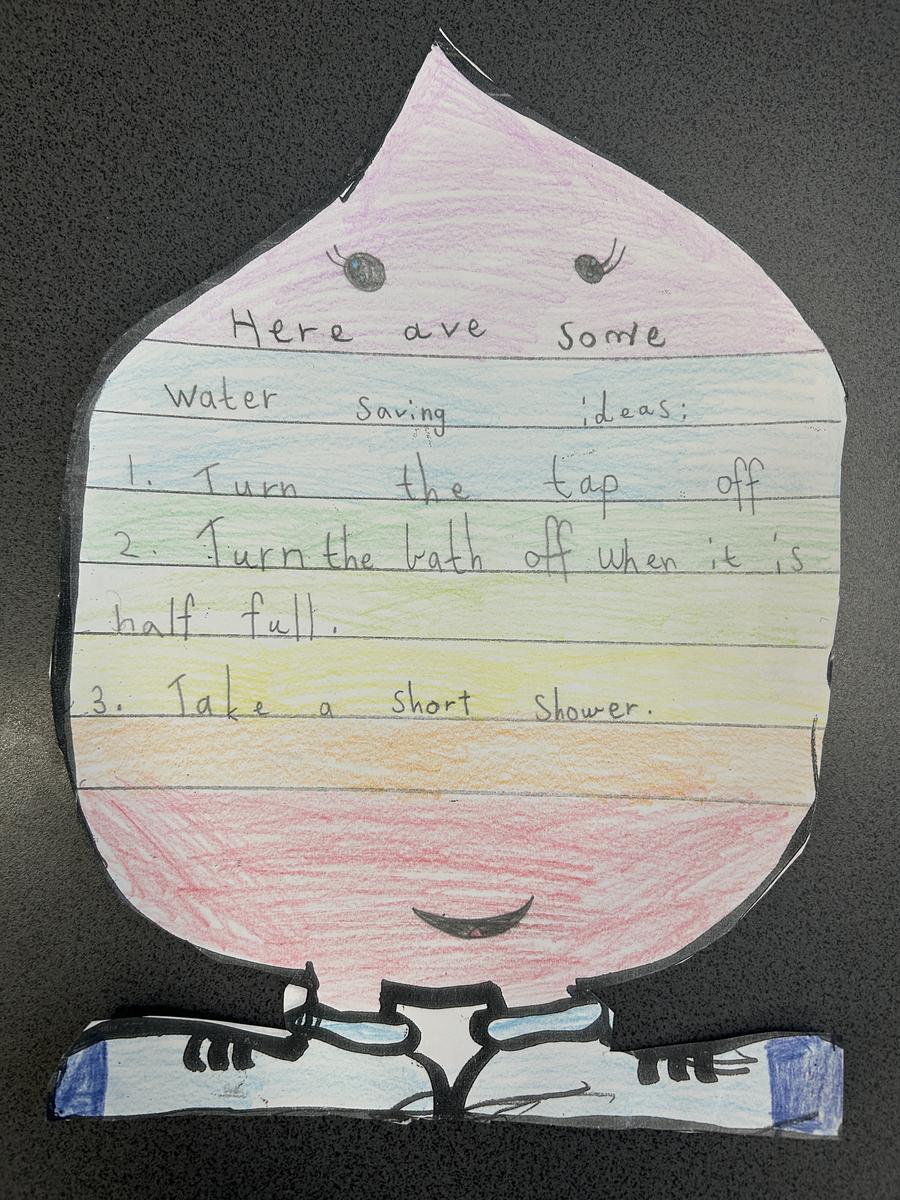 Here are some
Water saving ideas:
1. Turn the tap off
2. Turn the bath off when it is
half full.
3. Take a short shower.